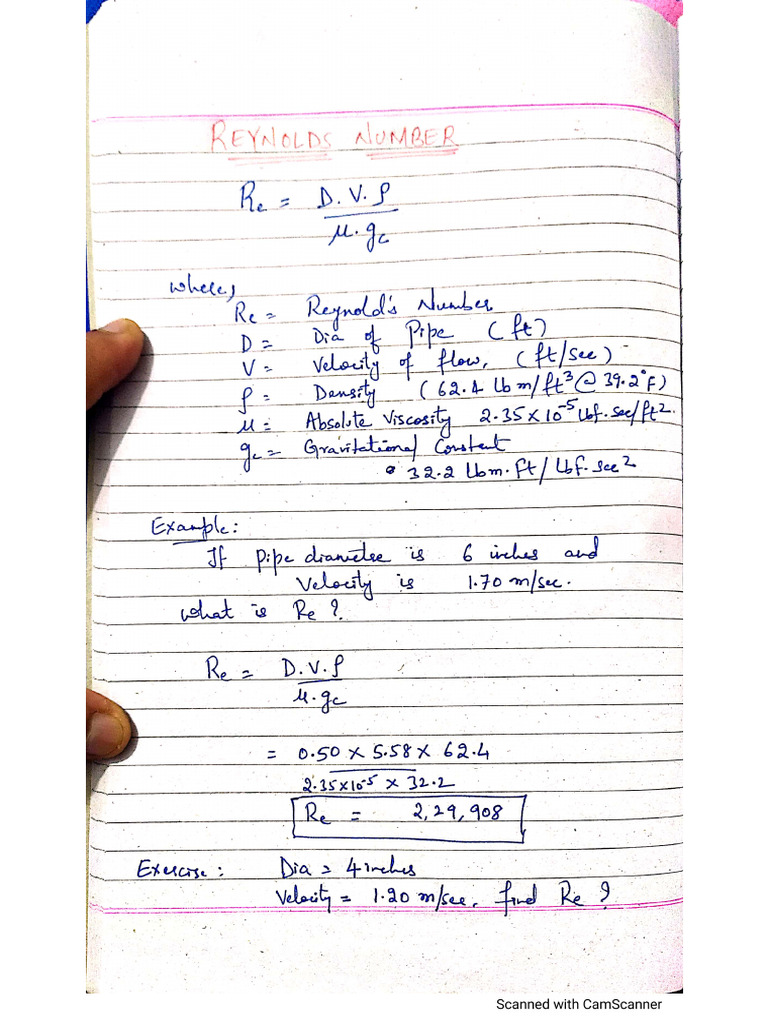 REYNOLDS NUMBER
Re = D.V.ρ
μ.gc
where,
Re = Reynold's Number
D = Dia of Pipe (ft)
V = Velocity of flow, (ft/sec)
ρ = Density (62.4 lbm/ft³ @ 39.2°F)
μ = Absolute Viscosity 2.35×10⁻⁵ lbf.sec/ft².
gc = Gravitational Constant
32.2 lbm.ft/lbf.sec²
Example:
If pipe diameter is 6 inches and
Velocity is 1.70 m/sec.
what is Re?
Re = D.V.ρ
μ.gc
= 0.50 × 5.58 × 62.4
2.35×10⁻⁵ × 32.2
Re = 2,29,908
Exercise: Dia = 4 inches
Velocity = 1.20 m/sec, find Re?
Scanned with CamScanner